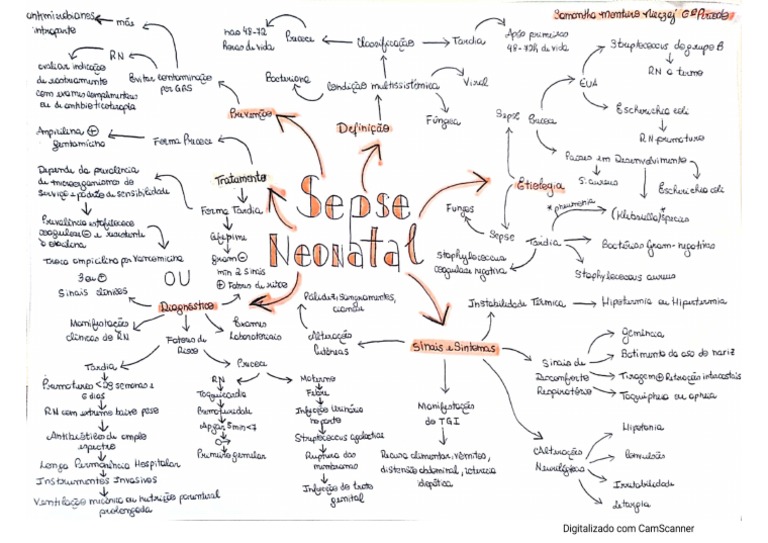 Samantha Monteiro 6º Período
antimicrobianos
intraparto
mãe
RN
avaliar indicação
de rastreamento
com exames complementares
ou de antibioticoterapia
Evitar contaminação
por GBS
Prevenção
nas 48-72
horas de vida
Precoce
Classificação
Tardia
Após primeiras
48-72h de vida
Bacteriana
Condição multissistêmica
Viral
Fúngica
Definição
Streptococcus do grupo B
RN a termo
EUA
Escherichia coli
RN prematuro
Sepse
Precoce
Países em Desenvolvimento
S. aureus
Escherichia coli
Etiologia
Fungos
Sepse
Tardia
* pneumonia
(Klebsiella) *species
Bactérias Gram-negativas
Staphylococcus aureus
Staphylococcus
coagulase negativa
Ampicilina +
gentamicina
Forma Precoce
Tratamento
Depende da prevalência
de microorganismos do
serviço e padrão de sensibilidade
Forma Tardia
Cefepime
gram -
Prevalência estafilococo
coagulase - e resistente
à oxacilina
Troca ampicilina por Vancomicina
Sepse
Neonatal
3 ou +
Sinais clínicos
OU
min 2 sinais
+ Fatores de risco
Diagnóstico
Manifestações
clínicas do RN
Fatores de
Risco
Exames
Laboratoriais
Tardia
Prematuros < 28 semanas e
6 dias
RN com extremo baixo peso
Antibiótico de amplo
espectro
Longa Permanência Hospitalar
Instrumentos Invasivos
Ventilação mecânica ou nutrição parenteral
prolongada
Precoce
RN
Taquicardia
Prematuridade
Apgar 5min <7
♂
Primeiro gemelar
Materno
Febre
Infecção Urinária
no parto
Streptococcus agalactiae
Ruptura das
membranas
Infecção do trato
genital
Palidez, sangramentos,
cianose
Alterações
Cutâneas
Sinais e Sintomas
Instabilidade Térmica
Hipotermia ou Hipertermia
Sinais de
Desconforto
Respiratório
Gemência
Batimento da asa do nariz
Tiragem + Retração intercostais
Taquipneia ou apneia
Manifestação
do TGI
Recusa alimentar, vômitos,
distensão abdominal, icterícia
idiopática
Alterações
Neurológicas
Hipotonia
Convulsões
Irritabilidade
Letargia
Digitalizado com CamScanner